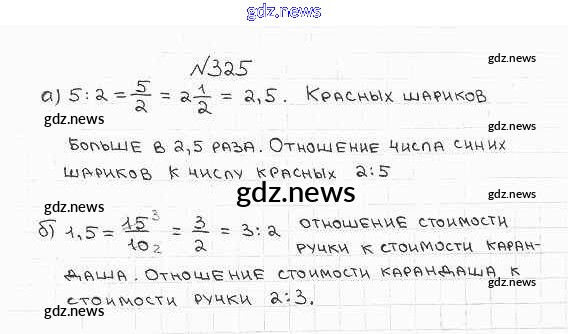 gdz.news
№325
gdz.news
а) 5:2 = 5/2 = 2 1/2 = 2,5. Красных шариков
gdz.news
больше в 2,5 раза. Отношение числа синих
gdz.news
шариков к числу красных 2:5
gdz.news
gdz.news
б) 1,5 = 15³/10₂ = 3/2 = 3:2 отношение стоимости
gdz.news
ручки к стоимости каран-
даша. Отношение стоимости карандаша к
gdz.news
стоимости ручки 2:3.
gdz.news